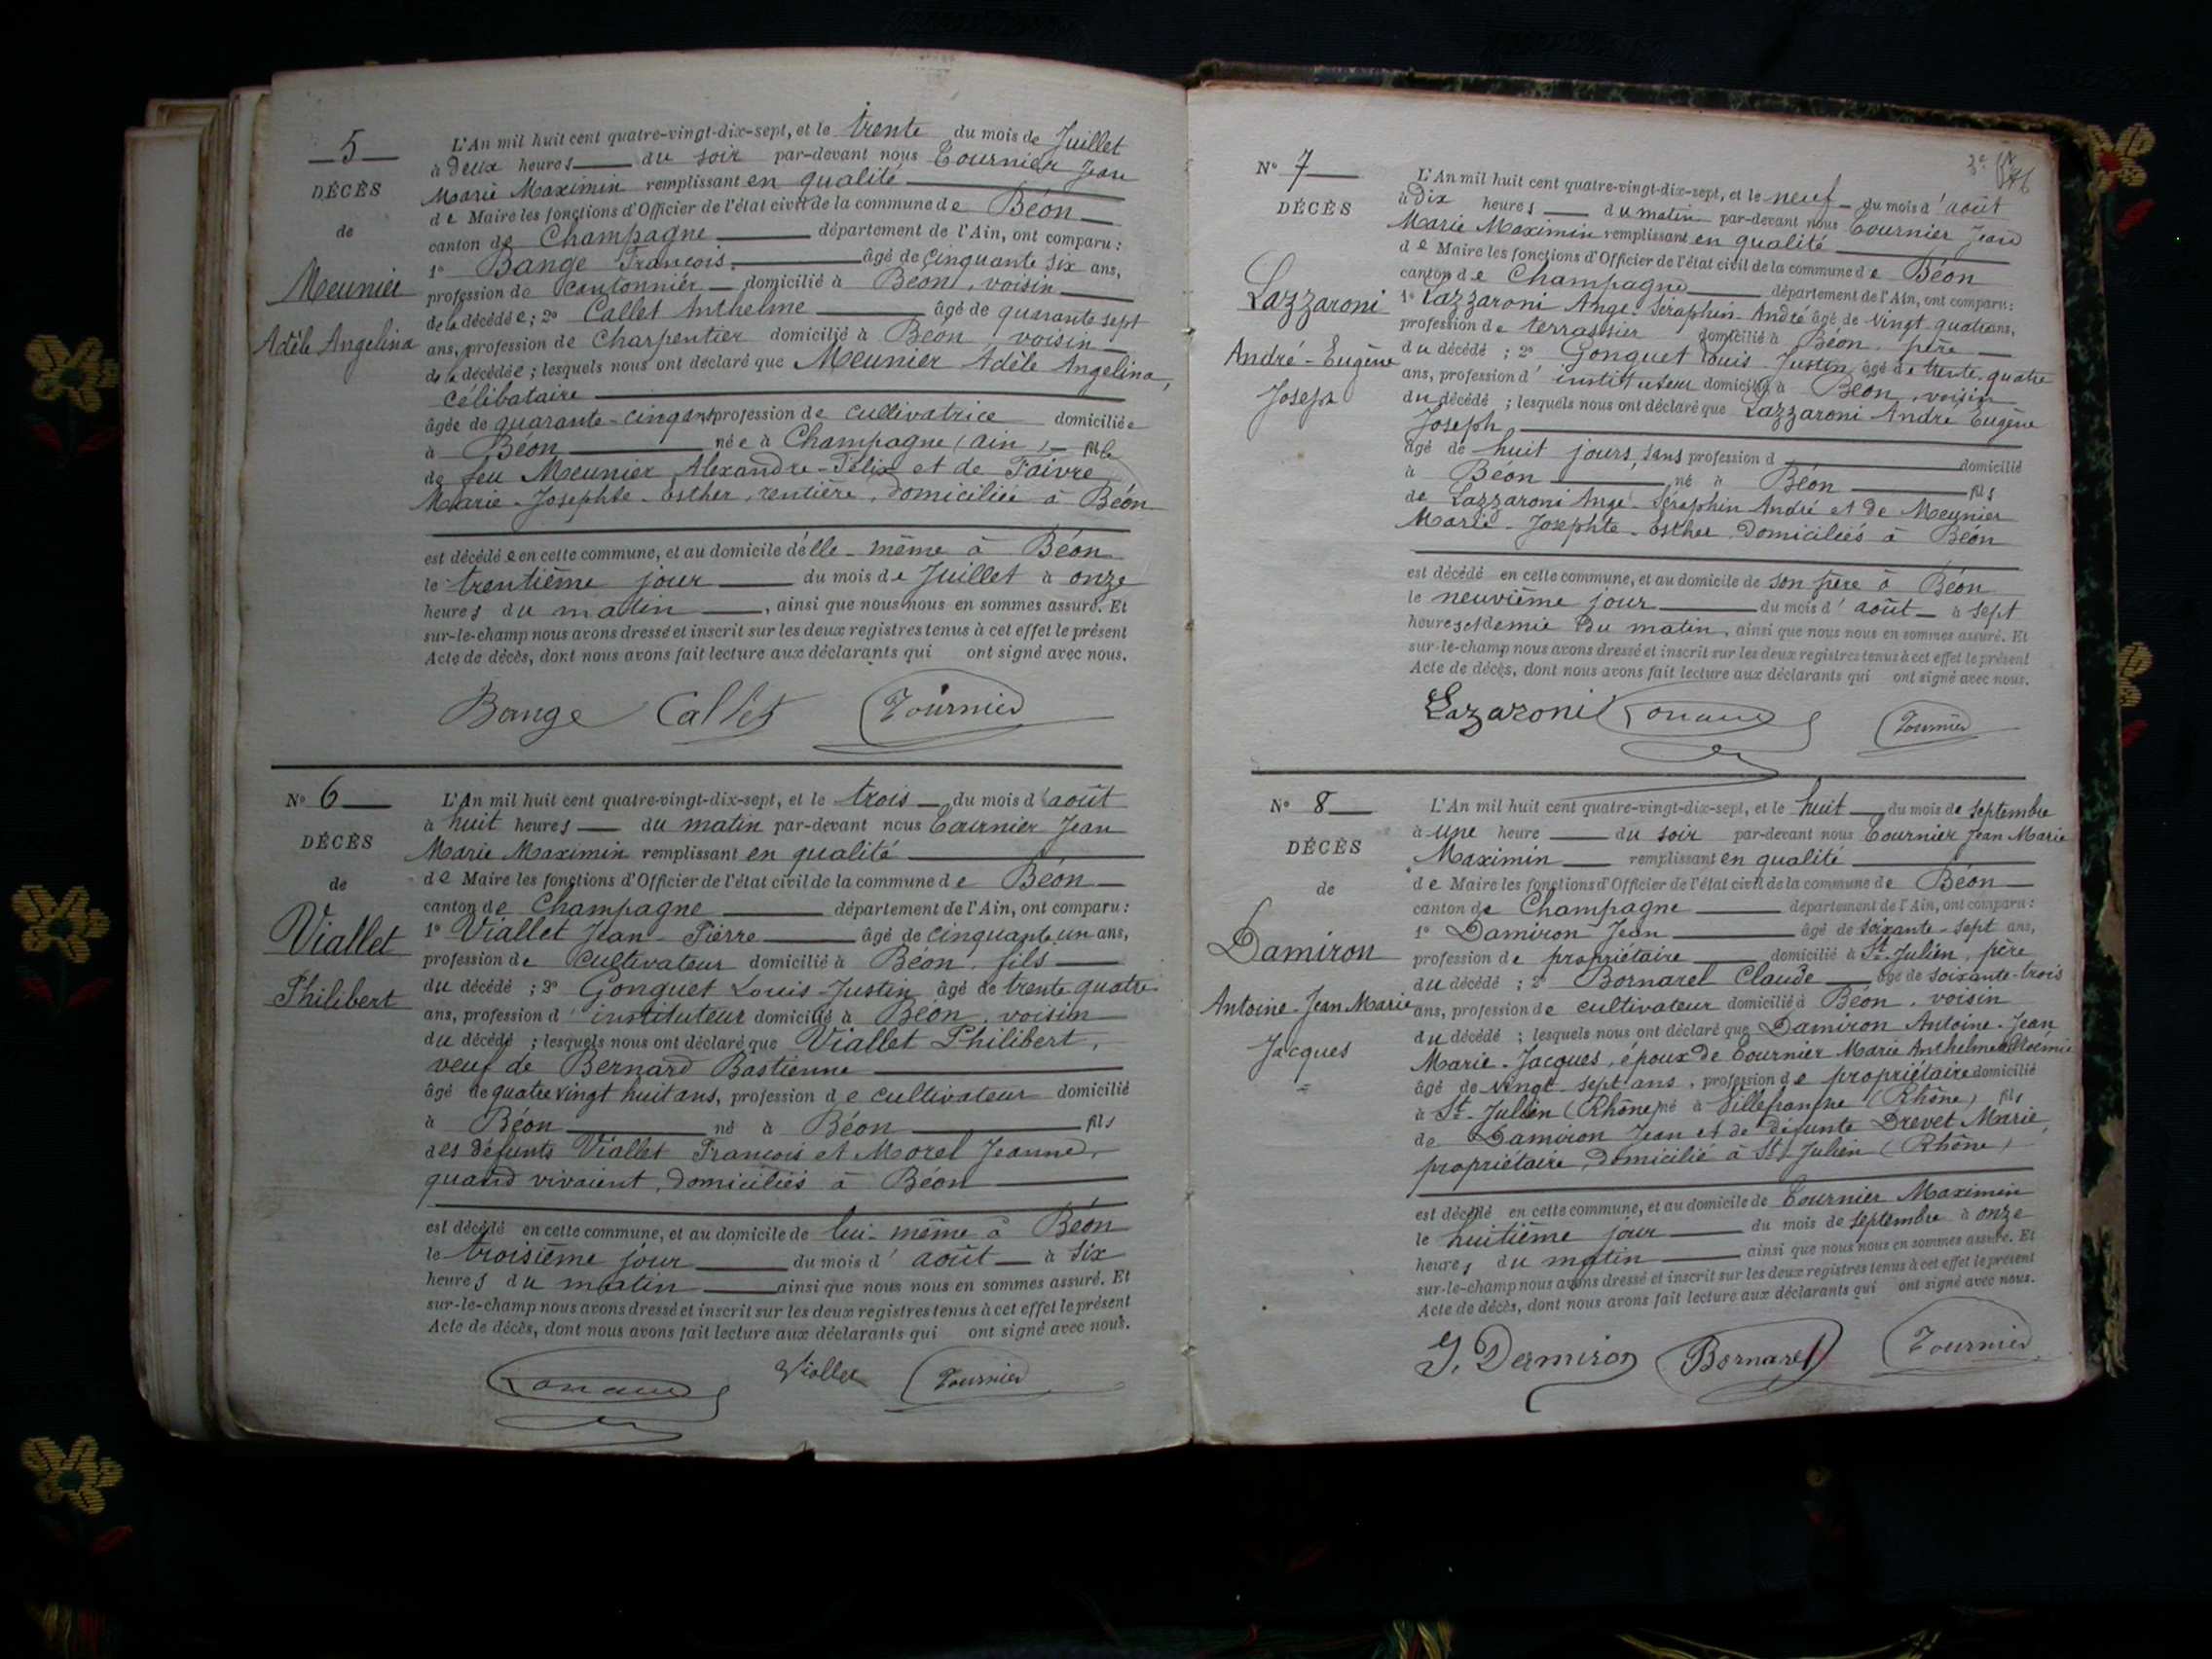 5
DÉCÈS
de
Meunier
Adèle Angelina
L'An mil huit cent quatre-vingt-dix-sept, et le trente du mois de Juillet
à deux heures du soir par-devant nous Tournier Jean
Marie Maximin remplissant en qualité
de Maire les fonctions d'Officier de l'état civil de la commune de Béon
canton de Champagne département de l'Ain, ont comparu :
1º Bange François âgé de cinquante six ans,
profession de cantonnier domicilié à Béon, voisin
de la décédée ; 2º Callet Anthelme âgé de quarante sept
ans, profession de charpentier domicilié à Béon, voisin
de la décédée ; lesquels nous ont déclaré que Meunier Adèle Angelina,
célibataire
âgée de quarante-cinq ans, profession de cultivatrice domiciliée
à Béon née à Champagne (ain) fille
de feu Meunier Alexandre-Félix et de Faivre
Marie-Josephte-Esther, rentière, domiciliée à Béon
est décédée en cette commune, et au domicile d'elle-même à Béon
le trentième jour du mois de Juillet à onze
heures du matin, ainsi que nous nous en sommes assuré. Et
sur-le-champ nous avons dressé et inscrit sur les deux registres tenus à cet effet le présent
Acte de décès, dont nous avons fait lecture aux déclarants qui ont signé avec nous.
Bange Callet Tournier
Nº 6
DÉCÈS
de
Viallet
Philibert
L'An mil huit cent quatre-vingt-dix-sept, et le trois du mois d'août
à huit heures du matin par-devant nous Tournier Jean
Marie Maximin remplissant en qualité
de Maire les fonctions d'Officier de l'état civil de la commune de Béon
canton de Champagne département de l'Ain, ont comparu :
1º Viallet Jean-Pierre âgé de cinquante un ans,
profession de cultivateur domicilié à Béon, fils
du décédé ; 2º Gonguet Louis-Justin âgé de trente quatre
ans, profession d'instituteur domicilié à Béon, voisin
du décédé ; lesquels nous ont déclaré que Viallet Philibert,
veuf de Bernard Bastienne
âgé de quatre vingt huit ans, profession de cultivateur domicilié
à Béon né à Béon fils
des défunts Viallet François et Morel Jeanne,
quand vivaient, domiciliés à Béon
est décédé en cette commune, et au domicile de lui-même à Béon
le troisième jour du mois d'août à six
heures du matin ainsi que nous nous en sommes assuré. Et
sur-le-champ nous avons dressé et inscrit sur les deux registres tenus à cet effet le présent
Acte de décès, dont nous avons fait lecture aux déclarants qui ont signé avec nous.
Viallet Tournier
Nº 7
DÉCÈS
Lazzaroni
André-Eugène
Joseph
L'An mil huit cent quatre-vingt-dix-sept, et le neuf du mois d'août
à dix heures du matin par-devant nous Tournier Jean
Marie Maximin remplissant en qualité
de Maire les fonctions d'Officier de l'état civil de la commune de Béon
canton de Champagne département de l'Ain, ont comparu :
1º Lazzaroni Ange-Séraphin-André âgé de vingt-quatre ans,
profession de terrassier domicilié à Béon, père
du décédé ; 2º Gonguet Louis-Justin âgé de trente-quatre
ans, profession d'instituteur domicilié à Béon, voisin
du décédé ; lesquels nous ont déclaré que Lazzaroni André Eugène
Joseph
âgé de huit jours, sans profession d domicilié
à Béon, né à Béon fils
de Lazzaroni Ange-Séraphin André et de Meunier
Marie-Josephte-Esther, domiciliés à Béon
est décédé en cette commune, et au domicile de son père à Béon
le neuvième jour du mois d'août à sept
heures et demie du matin, ainsi que nous nous en sommes assuré. Et
sur-le-champ nous avons dressé et inscrit sur les deux registres tenus à cet effet le présent
Acte de décès, dont nous avons fait lecture aux déclarants qui ont signé avec nous.
Lazaroni Tournier
Nº 8
DÉCÈS
de
Damiron
Antoine-Jean Marie
Jacques
L'An mil huit cent quatre-vingt-dix-sept, et le huit du mois de septembre
à une heure du soir par-devant nous Tournier Jean Marie
Maximin remplissant en qualité
de Maire les fonctions d'Officier de l'état civil de la commune de Béon
canton de Champagne département de l'Ain, ont comparu :
1º Damiron Jean âgé de soixante-sept ans,
profession de propriétaire domicilié à St Julien, père
du décédé ; 2º Bornarel Claude âgé de soixante-trois
ans, profession de cultivateur domicilié à Béon, voisin
du décédé ; lesquels nous ont déclaré que Damiron Antoine-Jean
Marie-Jacques, époux de Tournier Marie Anthelmette Noémie
âgé de vingt-sept ans, profession de propriétaire domicilié
à St-Julien (Rhône) né à Villefranche (Rhône) fils
de Damiron Jean et de défunte Drevet Marie,
propriétaire, domicilié à St Julien (Rhône)
est décédé en cette commune, et au domicile de Tournier Maximin
le huitième jour du mois de septembre à onze
heures du matin ainsi que nous nous en sommes assuré. Et
sur-le-champ nous avons dressé et inscrit sur les deux registres tenus à cet effet le présent
Acte de décès, dont nous avons fait lecture aux déclarants qui ont signé avec nous.
J. Damiron Bornarel Tournier